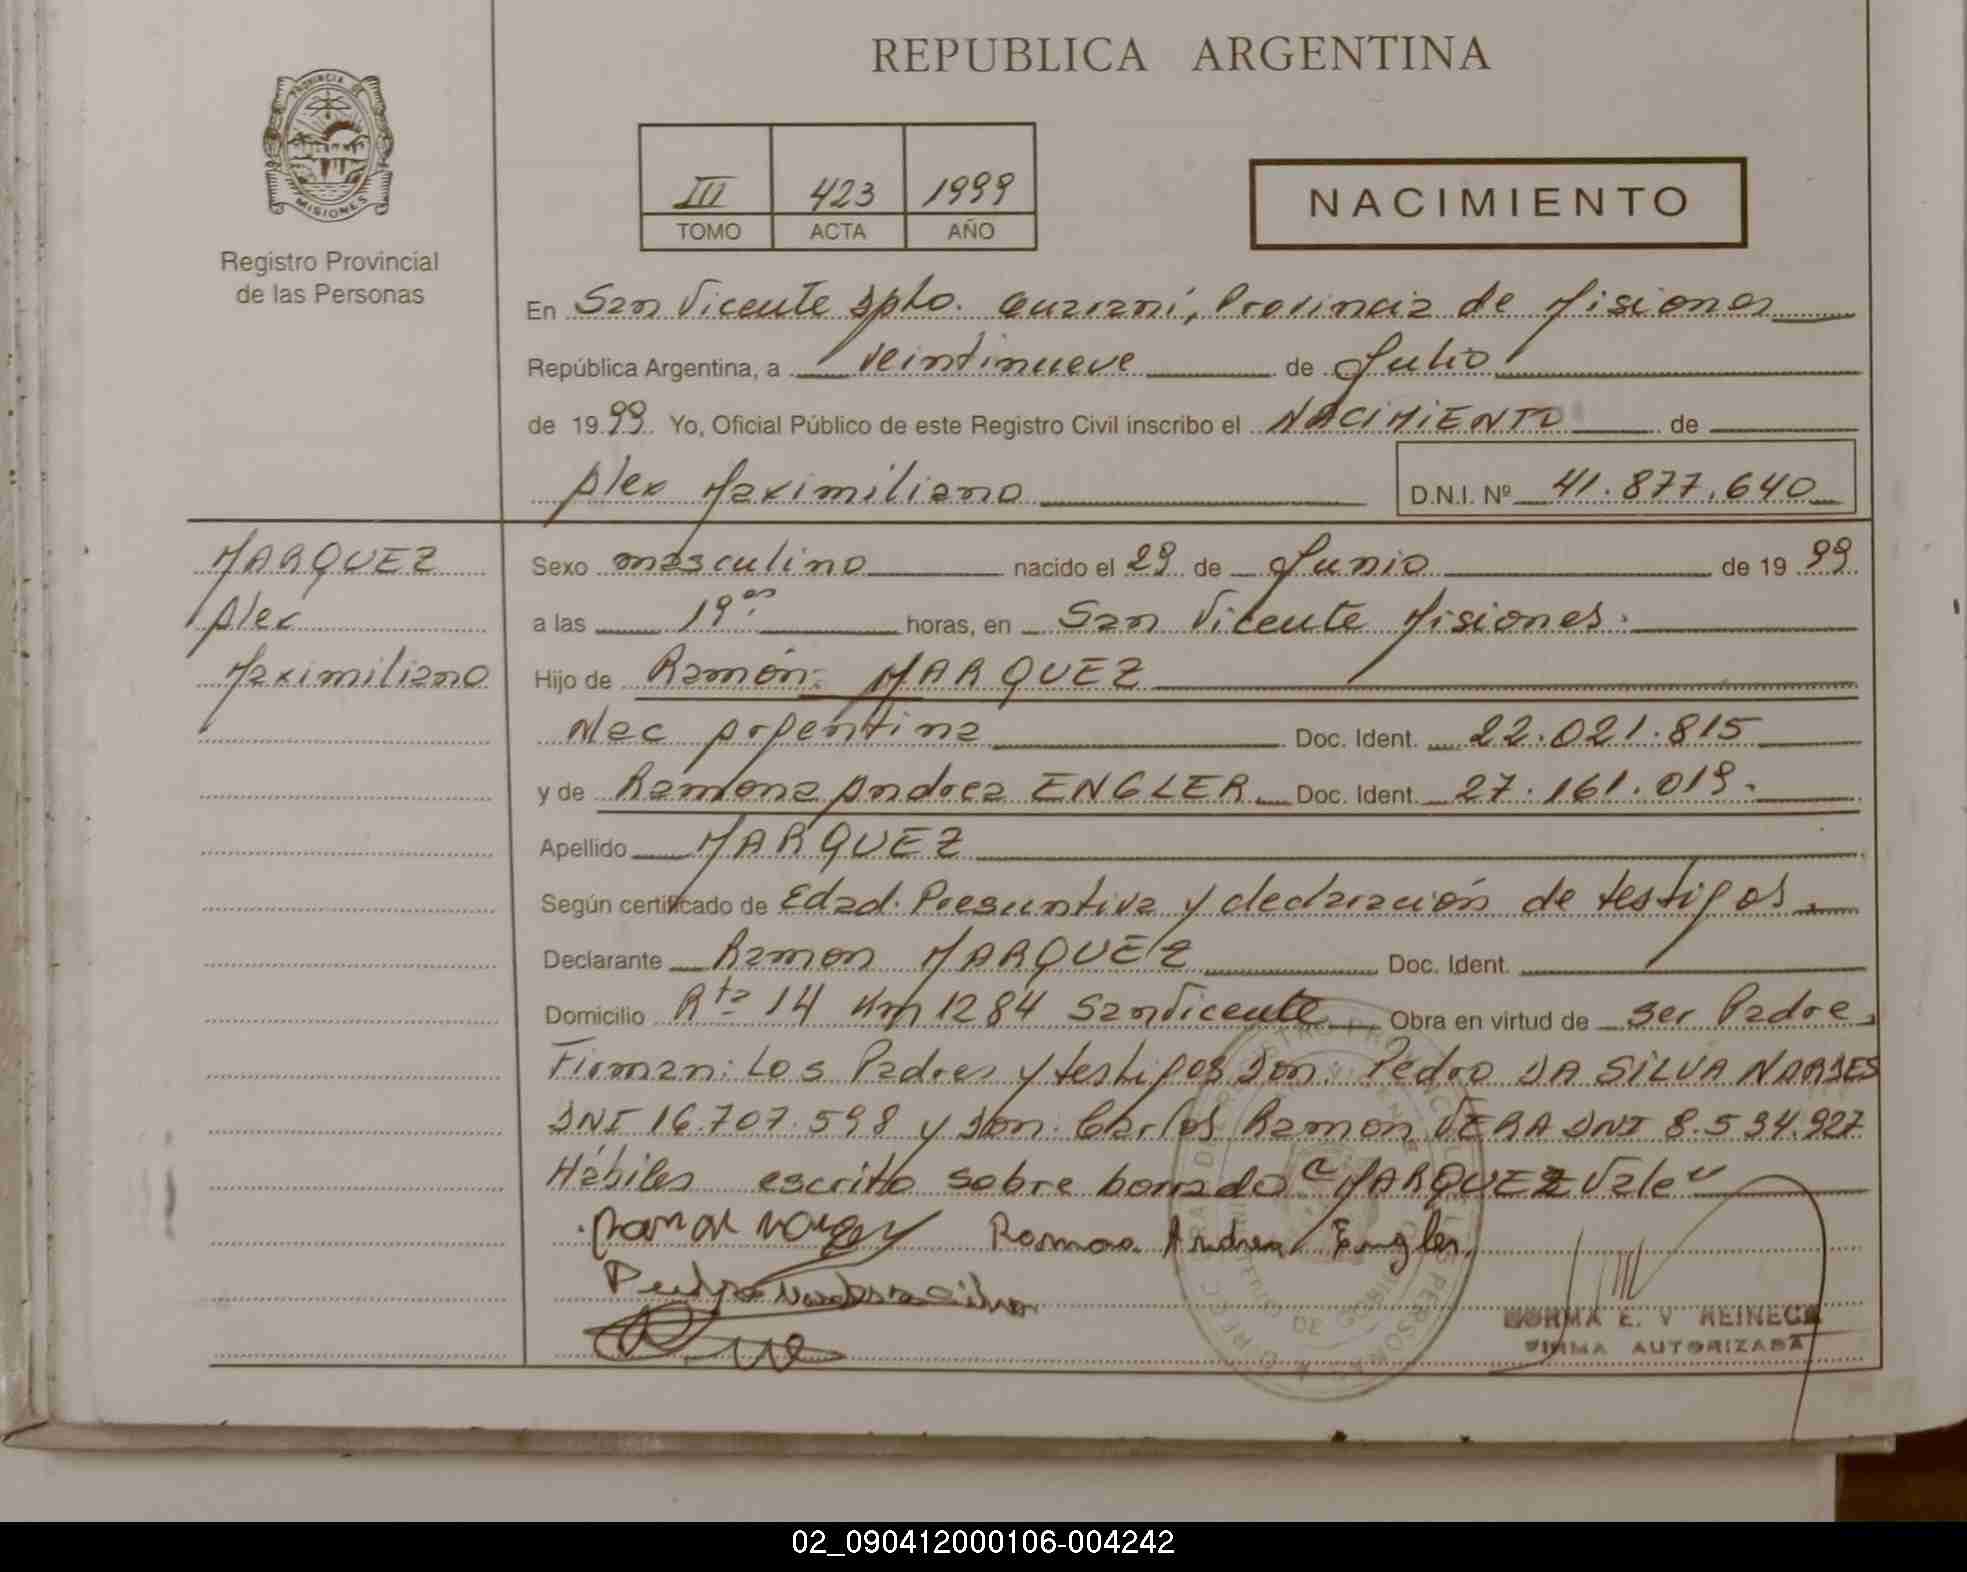 REPUBLICA ARGENTINA
PROVINCIA DE
MISIONES
Registro Provincial
de las Personas
III 423 1999
TOMO ACTA AÑO
NACIMIENTO
En San Vicente Dpto. Guaraní, Provincia de Misiones
República Argentina, a veintinueve de Julio
de 19 99 Yo, Oficial Público de este Registro Civil inscribo el NACIMIENTO de
Alex Maximiliano D.N.I. Nº 41.877.640
MARQUEZ
Alex
Maximiliano
Sexo masculino nacido el 29 de Junio de 19 99
a las 19 hs. horas, en San Vicente Misiones.
Hijo de Ramón MARQUEZ
Nac Argentina Doc. Ident. 22.021.815
y de Ramona Andrea ENGLER Doc. Ident. 27.161.019.
Apellido MARQUEZ
Según certificado de Edad Presuntiva y declaración de testigos
Declarante Ramon MARQUEZ Doc. Ident.
Domicilio Rta 14 Km 1284 San Vicente Obra en virtud de ser Padre,
Firman: Los Padres y testigos Don: Pedro DA SILVA NARDES
DNI 16.707.598 y Don: Carlos Ramon VERA DNI 8.534.927
Hábiles escrito sobre borrado "MARQUEZ" Vale
Ramona Andrea Engler
NORMA E. V REINECK
FIRMA AUTORIZADA
02_090412000106-004242